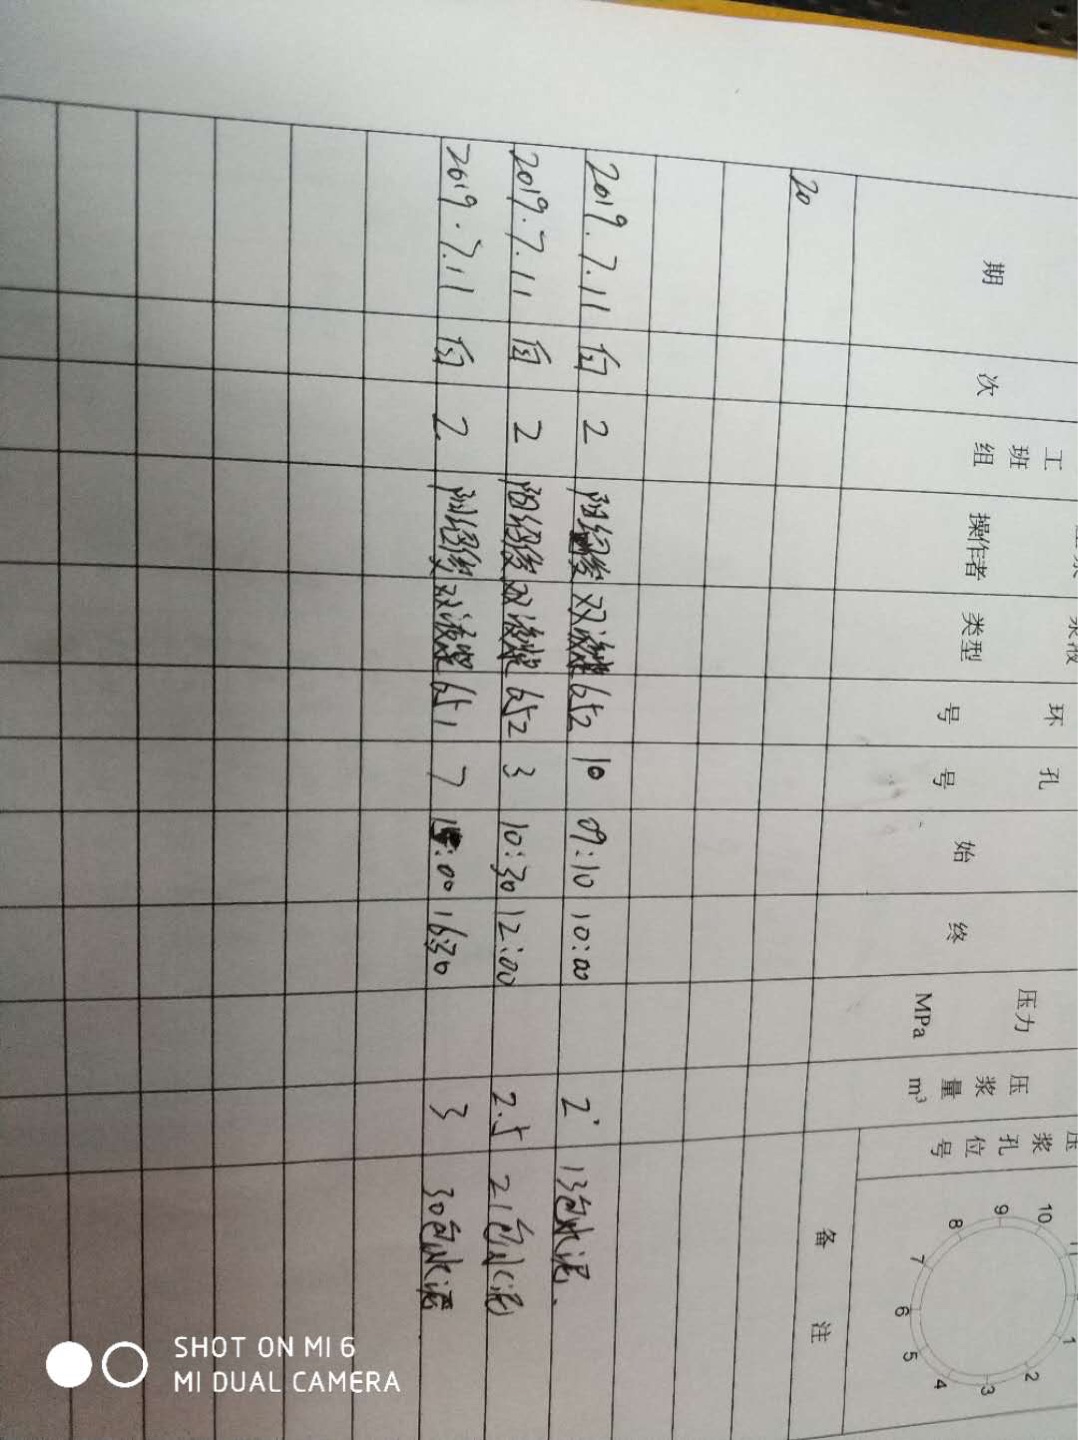 工 环 孔 压力 压
期 次 班 操作者 类型 号 号 始 终 MPa 浆
组 量
m³
压浆孔位号
1 2 3 4 5 6 7 8 9 10
备 注
20
2019.7.11 白 2 双液浆 652 10 09:10 10:00 2 13包水泥
2019.7.11 白 2 双液浆 652 3 10:30 12:00 2.5 21包水泥
2019.7.11 白 2 双液浆 651 7 15:00 16:30 3 30包水泥
SHOT ON MI 6
MI DUAL CAMERA